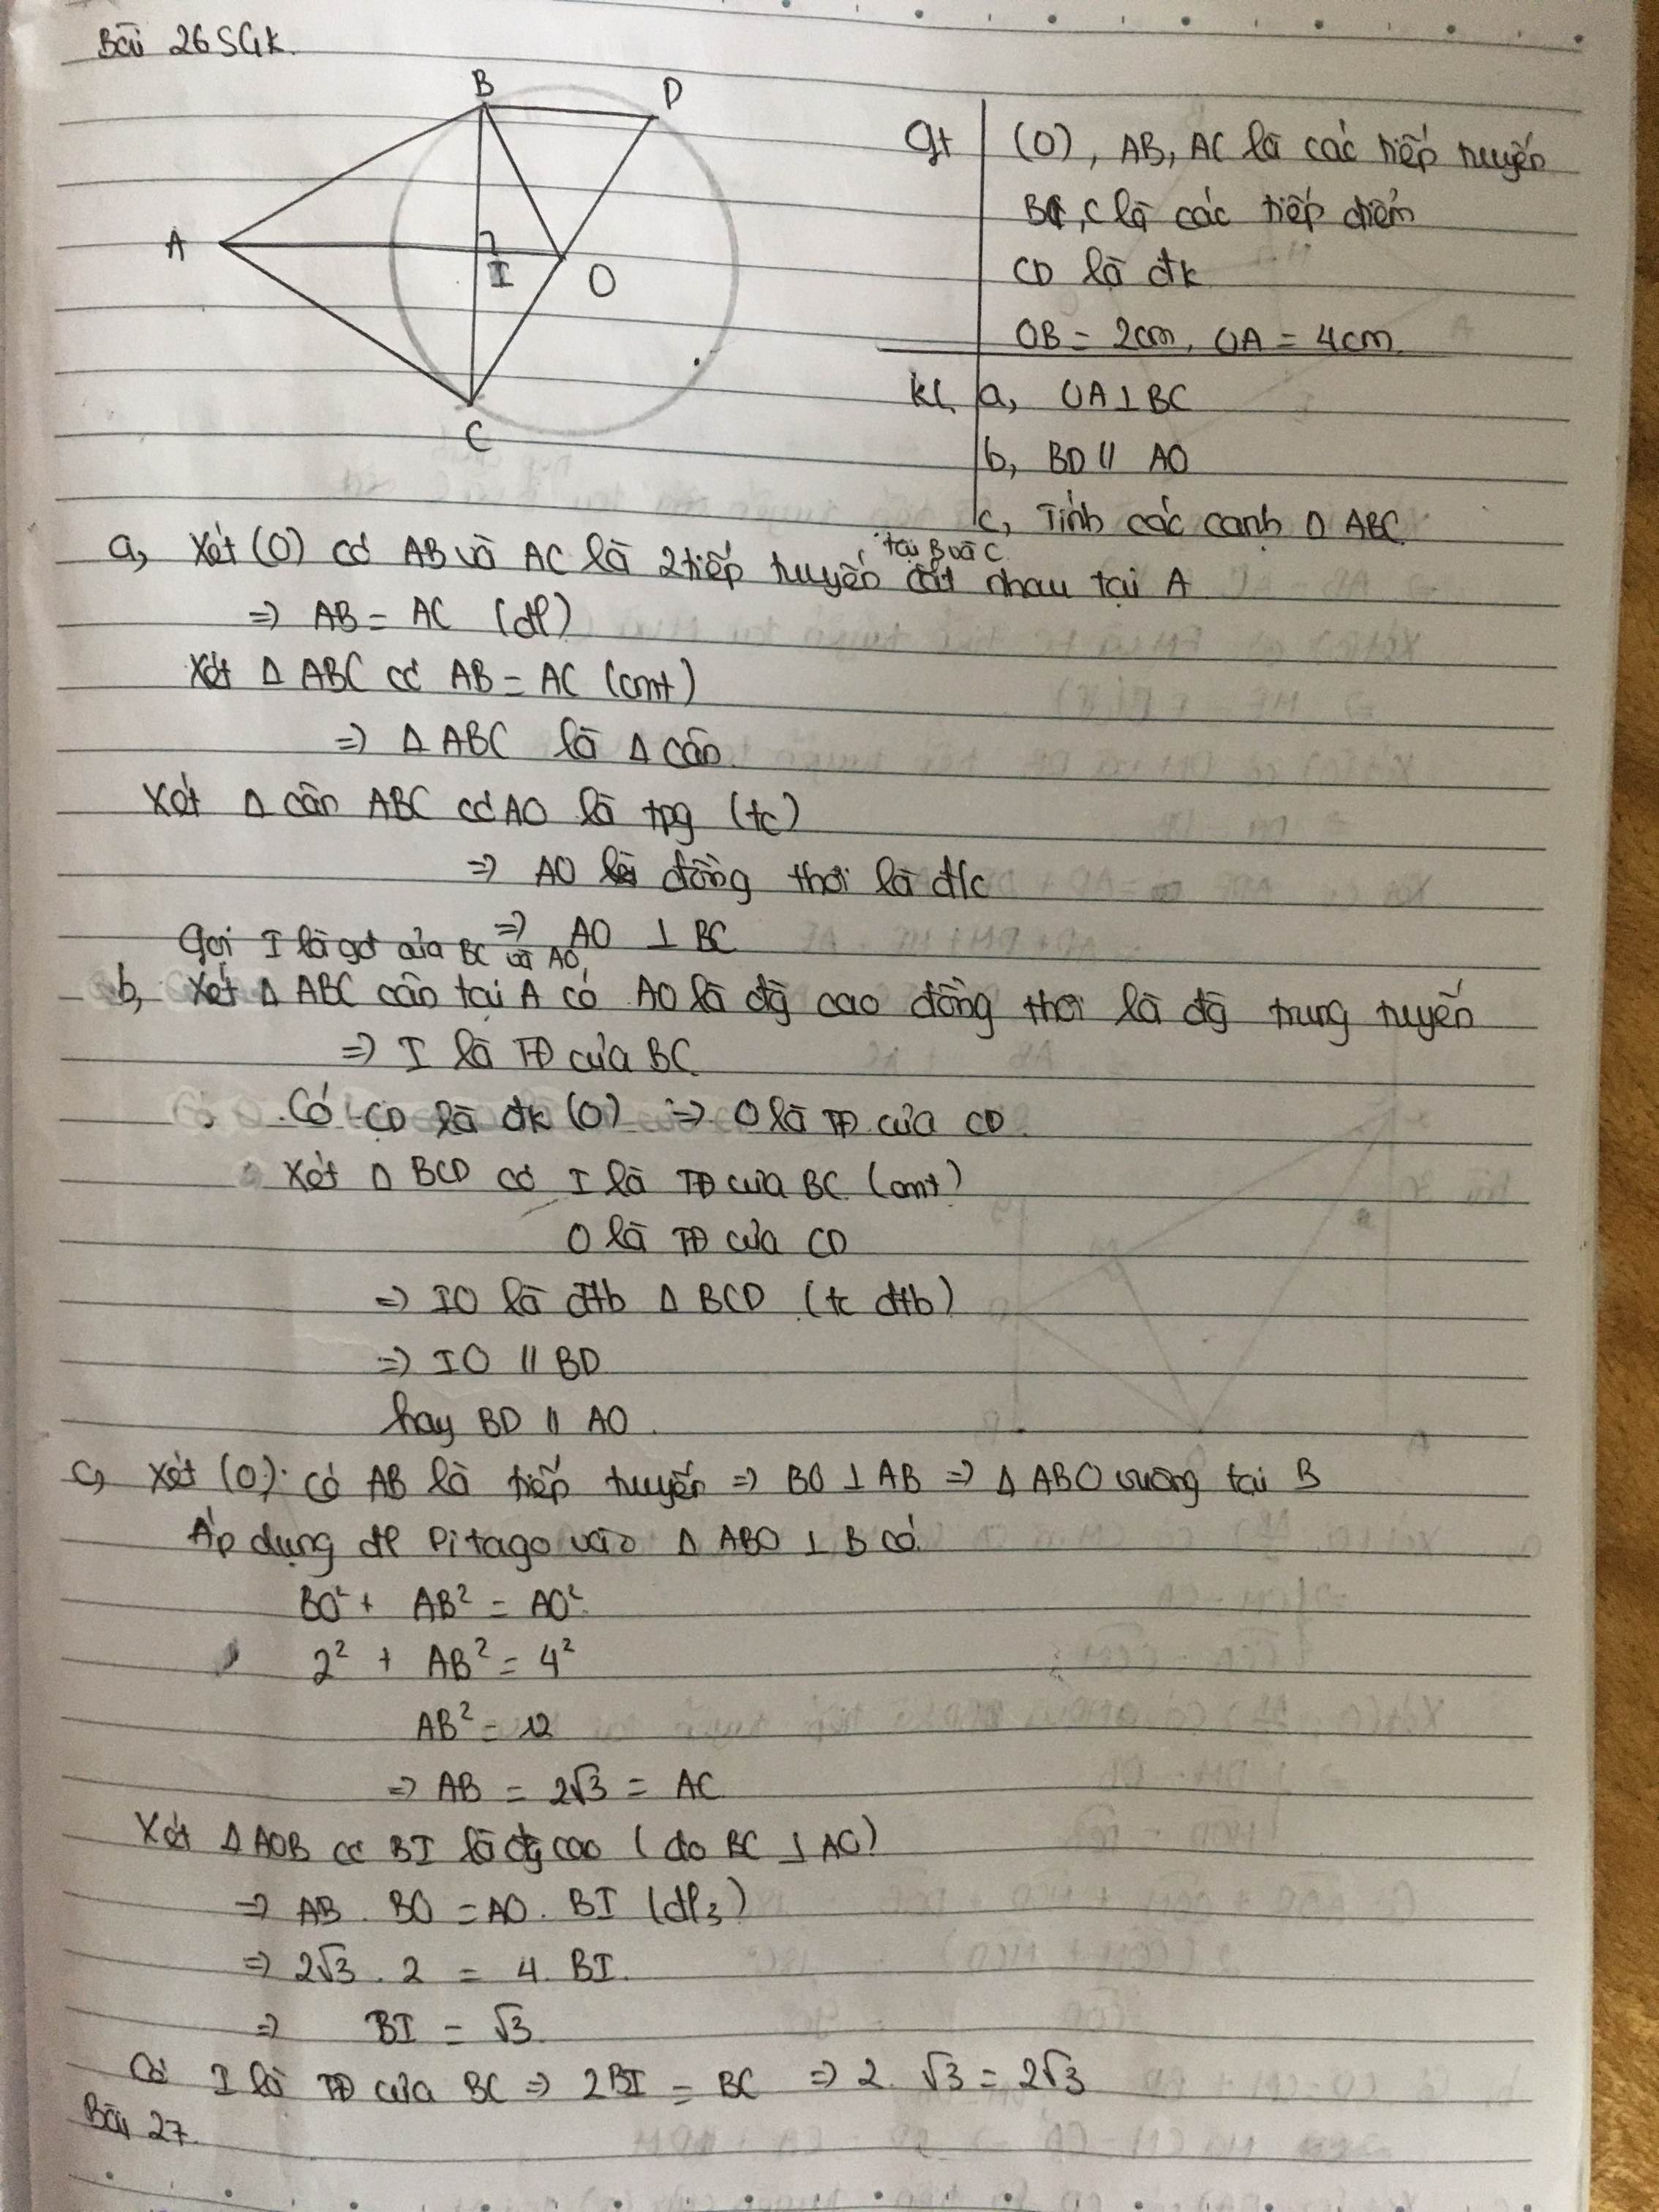 Bài 26 SGK.
B
D
A
I
O
C
gt
(O), AB, AC là các tiếp tuyến
B, C là các tiếp điểm
CD là đk
OB = 2cm, OA = 4cm
kl
a, OA ⊥ BC
b, BD // AO
c, Tính các cạnh Δ ABC
a, Xét (O) có AB và AC là 2 tiếp tuyến tại B và C cắt nhau tại A
=> AB = AC (đl)
Xét Δ ABC có AB = AC (cmt)
=> Δ ABC là Δ cân
Xét Δ cân ABC có AO là tpg (tc)
=> AO là đồng thời là đ/c
=> AO ⊥ BC
Gọi I là gđ của BC và AO,
b, Xét Δ ABC cân tại A có AO là đg cao đồng thời là đg trung tuyến
=> I là TĐ của BC
Có CD là đk (O) => O là TĐ của CD
Xét Δ BCD có I là TĐ của BC (cmt)
O là TĐ của CD
=> IO là đtb Δ BCD (tc đtb)
=> IO // BD
hay BD // AO.
c, Xét (O) có AB là tiếp tuyến => BO ⊥ AB => Δ ABO vuông tại B
Áp dụng đl Pitago vào Δ ABO ⊥ B có
BO² + AB² = AO²
2² + AB² = 4²
AB² = 12
=> AB = 2√3 = AC
Xét Δ AOB có BI là đg cao (do BC ⊥ AO)
=> AB . BO = AO . BI (đl3)
=> 2√3 . 2 = 4. BI.
=> BI = √3
Có I là TĐ của BC => 2BI = BC => 2. √3 = 2√3
Bài 27.